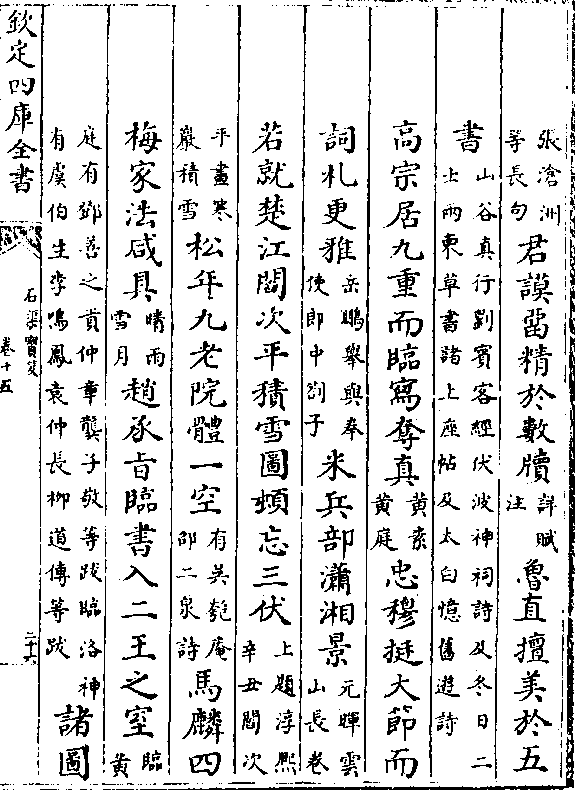 張滄洲等長句君謨畱精於數牘詳賦注魯直擅美於五
書山谷真行劉賓客經伏波神祠詩及冬日二士兩東草書諸上座帖及太白憶舊遊詩
高宗居九重而臨寫奪真黃素黃庭忠穆挺大節而
詞札更雅岳鵬舉與奉使郎中劄子米兵部瀟湘景元暉雲山長卷
若就楚江閻次平積雪圖頓忘三伏上題淳熙辛丑閻次
平畫寒巖積雪松年九老院體一空有吳匏庵邵二泉詩馬麟四
梅家法咸具晴雨雪月趙承旨臨書入二王之室臨黃
庭有鄧善之貢仲章龔子敬等跋臨洛神有虞伯生李鳴鳳袁仲長柳道傳等跋諸圖
欽定四庫全書
石渠寶笈
卷十五
二十六